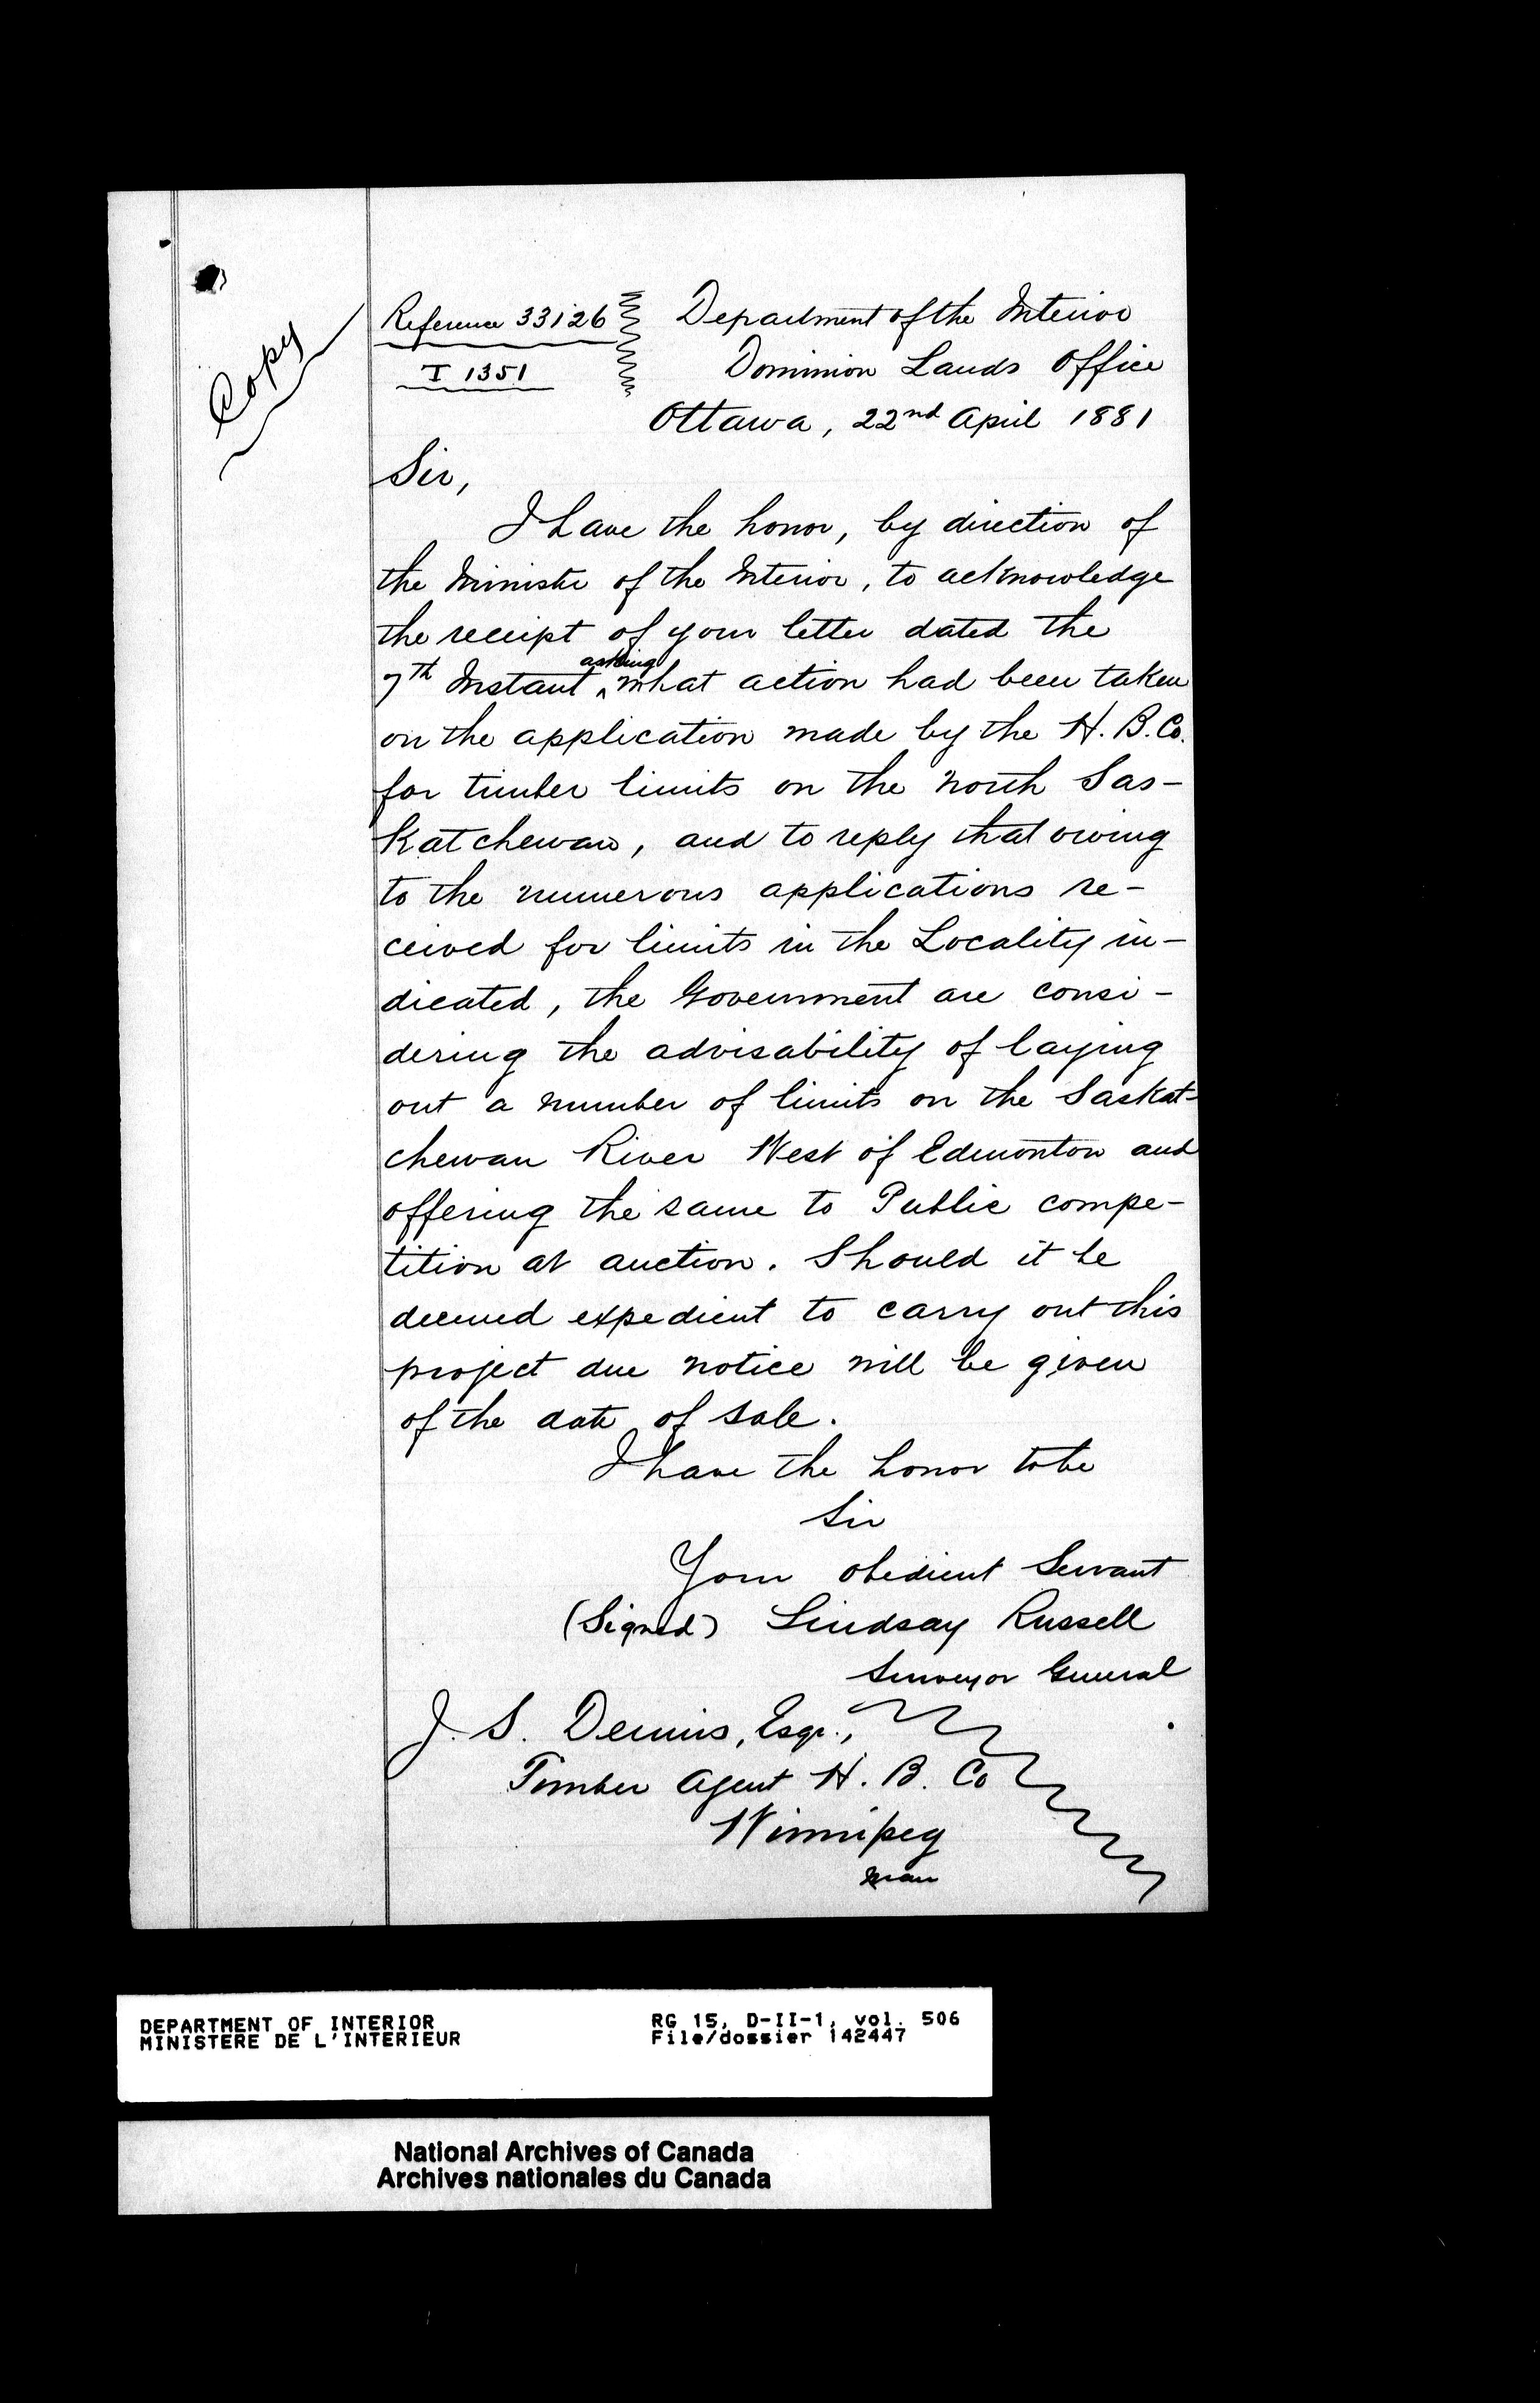 Copy
Reference 33126
T 1351
Department of the Interior
Dominion Lands Office
Ottawa, 22nd April 1881
Sir,
I have the honor, by direction of
the Minister of the Interior, to acknowledge
the receipt of your letter dated the
7th Instant ^asking what action had been taken
on the application made by the H. B. Co.
for timber limits on the North Sas-
katchewan, and to reply that owing
to the numerous applications re-
ceived for limits in the Locality in-
dicated, the Government are consi-
dering the advisability of laying
out a number of limits on the Saskat-
chewan River West of Edmonton and
offering the same to Public compe-
tition at auction. Should it be
deemed expedient to carry out this
project due notice will be given
of the date of sale.
I have the honor to be
Sir
Your obedient Servant
(Signed) Lindsay Russell
Surveyor General
J. S. Dennis, Esqr.,
Timber Agent H. B. Co
Winnipeg
Man
DEPARTMENT OF INTERIOR RG 15, D-II-1, vol. 506
MINISTERE DE L'INTERIEUR File/dossier 142447
National Archives of Canada
Archives nationales du Canada